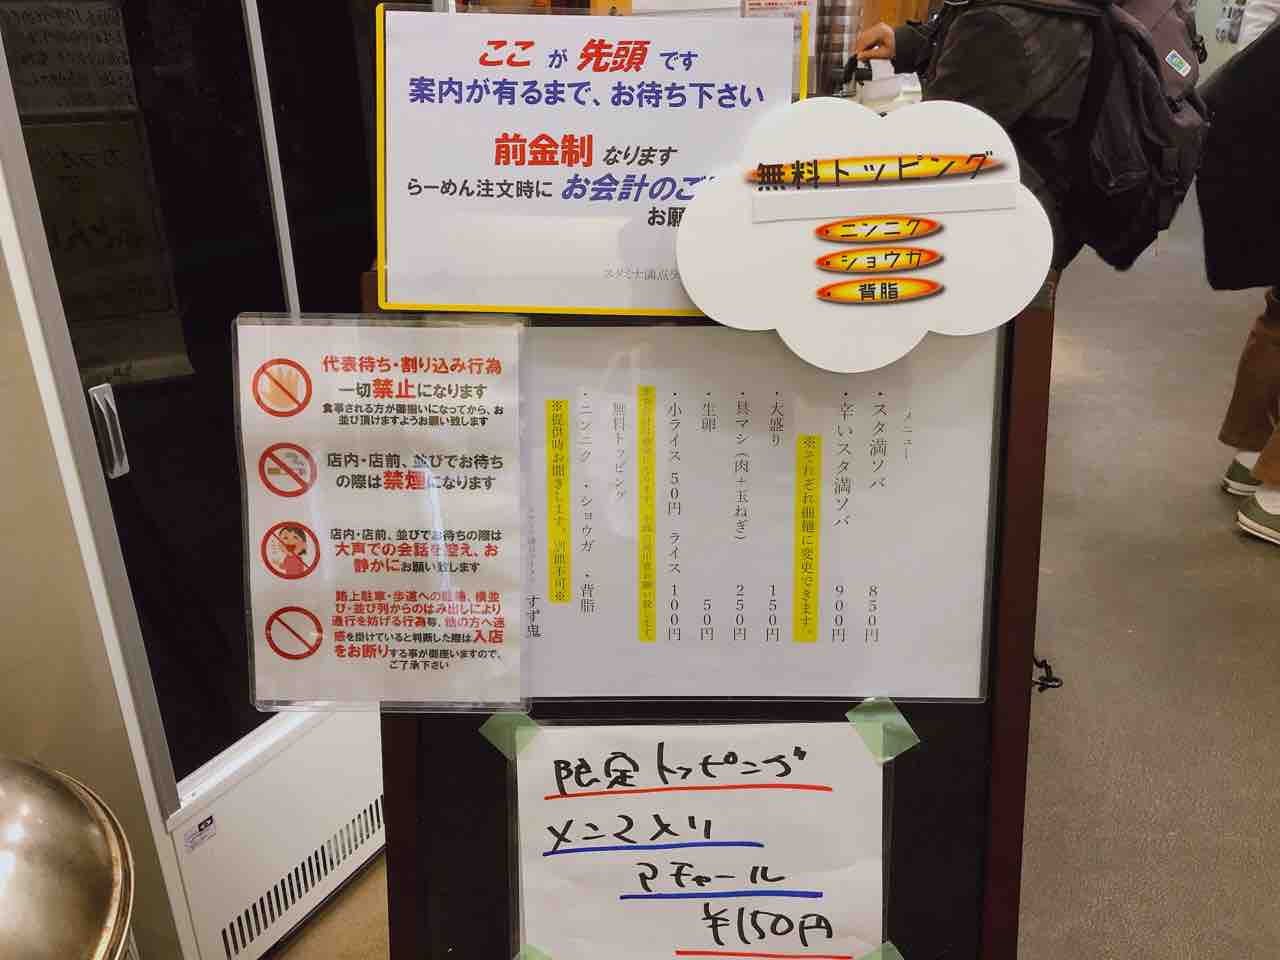 ここ が 先頭 です
案内が有るまで、お待ち下さい
前金制 なります
らーめん注文時に お会計の
お願
スタミナ満点
無料トッピング
・ニンニク
・ショウガ
・背脂
代表待ち・割り込み行為
一切禁止になります
食事される方が御揃いになってから、お
並び頂けますようお願い致します
店内・店前、並びでお待ち
の際は禁煙になります
店内・店前、並びでお待ちの際は
大声での会話を控え、お
静かにお願い致します
路上駐車・歩道への駐輪、横並
び・並び列からのはみ出しにより
通行を妨げる行為等、他の方へ迷
惑を掛けていると判断した際は入店
をお断りする事が御座いますので、
ご了承下さい
メニュー
・スタ満ソバ 850円
・辛いスタ満ソバ 900円
※それぞれ細麺に変更できます。
・大盛り 150円
・具マシ(肉+玉ねぎ) 250円
・生卵 50円
・小ライス 50円 ライス 100円
無料トッピング
・ニンニク ・ショウガ ・背脂
※提供時お聞きします。別皿不可※
すず鬼
限定トッピング
メンマメリ
アチャール
¥150円